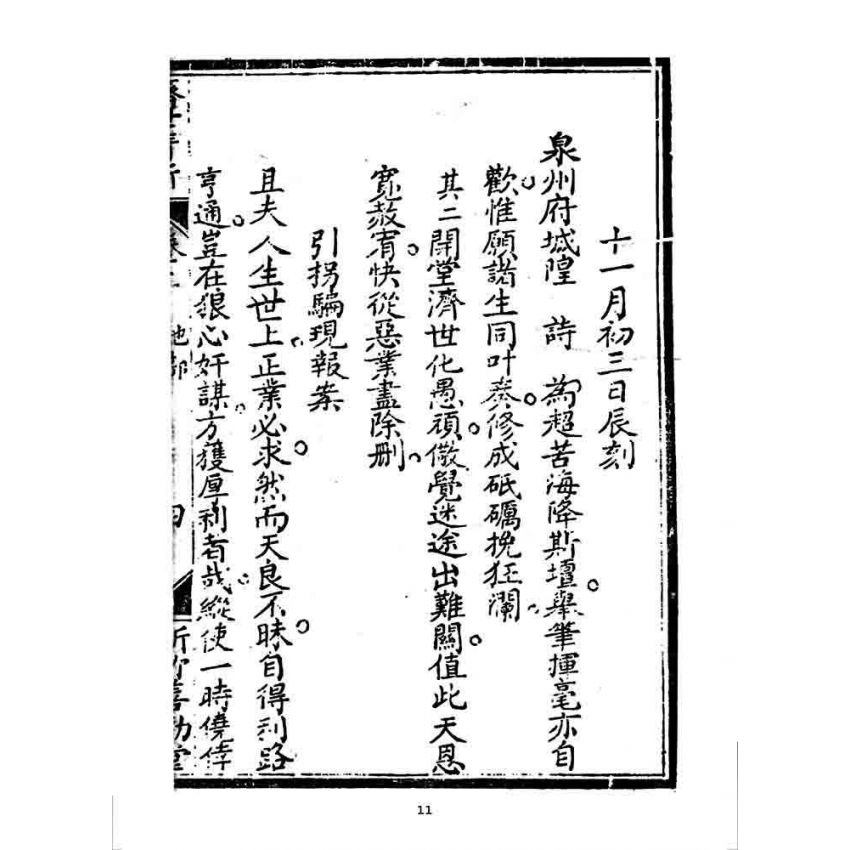 十一月初三日辰刻
泉州府城隍　詩　為超苦海降斯壇。舉筆揮毫亦自
歡。惟願諸生同叶奏。修成砥礪挽狂瀾。
其二　開堂濟世化愚頑。儆覺迷途出難關。值此天恩
寬赦宥。快從惡業盡除刪。
引拐騙現報案
且夫人生世上。正業必求。然而天良不昧。自得利路
亨通。豈在狼心奸謀。方獲厚利者哉。縱使一時僥倖
11